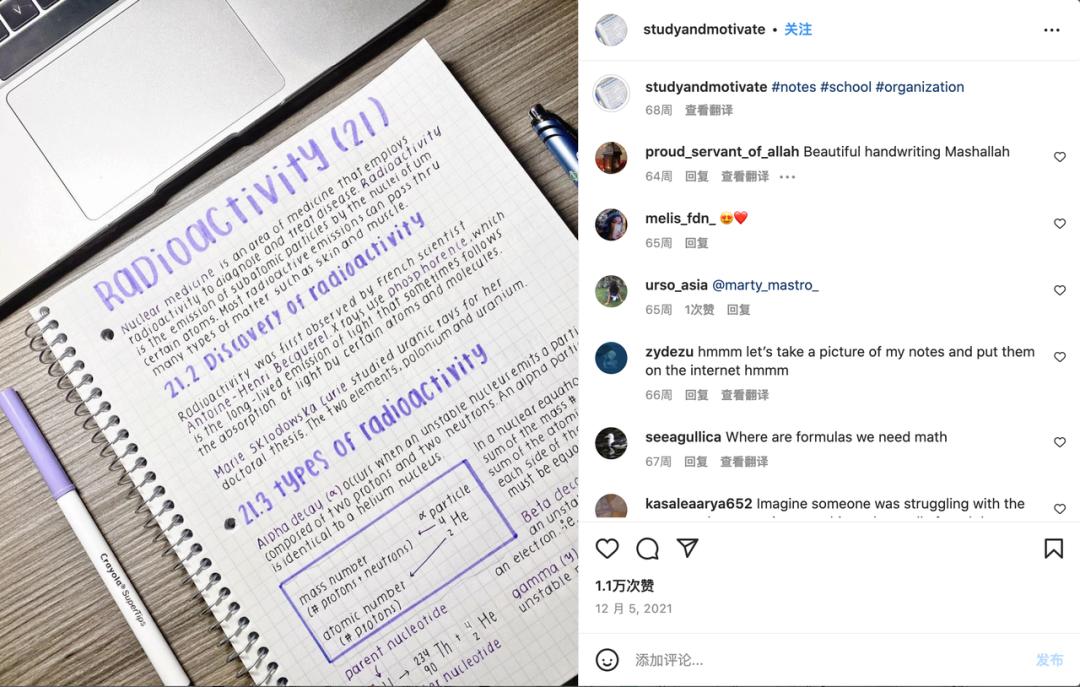 RADIOACTIVITY (21)
Nuclear medicine is an area of medicine that employs
radioactivity to diagnose and treat disease. Radioactivity
is the emission of subatomic particles by the nuclei of um
certain atoms. Most radioactive emissions can pass thru
many types of matter such as skin and muscle.
21.2 Discovery of radioactivity
Radioactivity was first observed by French scientist
Antoine-Henri Becquerel. X rays use phosphorence, which
is the long-lived emission of light that sometimes follows
the absorption of light by certain atoms and molecules.
Marie Sklodowska Curie studied uranic rays for her
doctoral thesis. The two elements, polonium and uranium.
21.3 types of radioactivity
Alpha decay (α) occurs when an unstable nucleur emits a parti
composed of two protons and two neutrons. An alpha parti
is identical to a helium nucleus.
mass number
(# protons + neutrons)
α particle
4
2 He
atomic number
(# protons)
In a nuclear equatio
sum of the mass #
sum of the atomi
each side of th
must be equa
Beta deca
an unsta
an electron, ie.
gamma (γ)
unstable n
parent nucleotide
→ 234 90 Th + 4 2 He
er nucleotide
Crayola® SuperTips
studyandmotivate • 关注
studyandmotivate #notes #school #organization
68周 查看翻译
proud_servant_of_allah Beautiful handwriting Mashallah
64周 回复 查看翻译
melis_fdn_ 😍❤️
65周 回复
urso_asia @marty_mastro_
65周 1次赞 回复
zydezu hmmm let’s take a picture of my notes and put them
on the internet hmmm
66周 回复 查看翻译
seeagullica Where are formulas we need math
67周 回复 查看翻译
kasaleaarya652 Imagine someone was struggling with the
1.1万次赞
12 月 5, 2021
添加评论...
发布